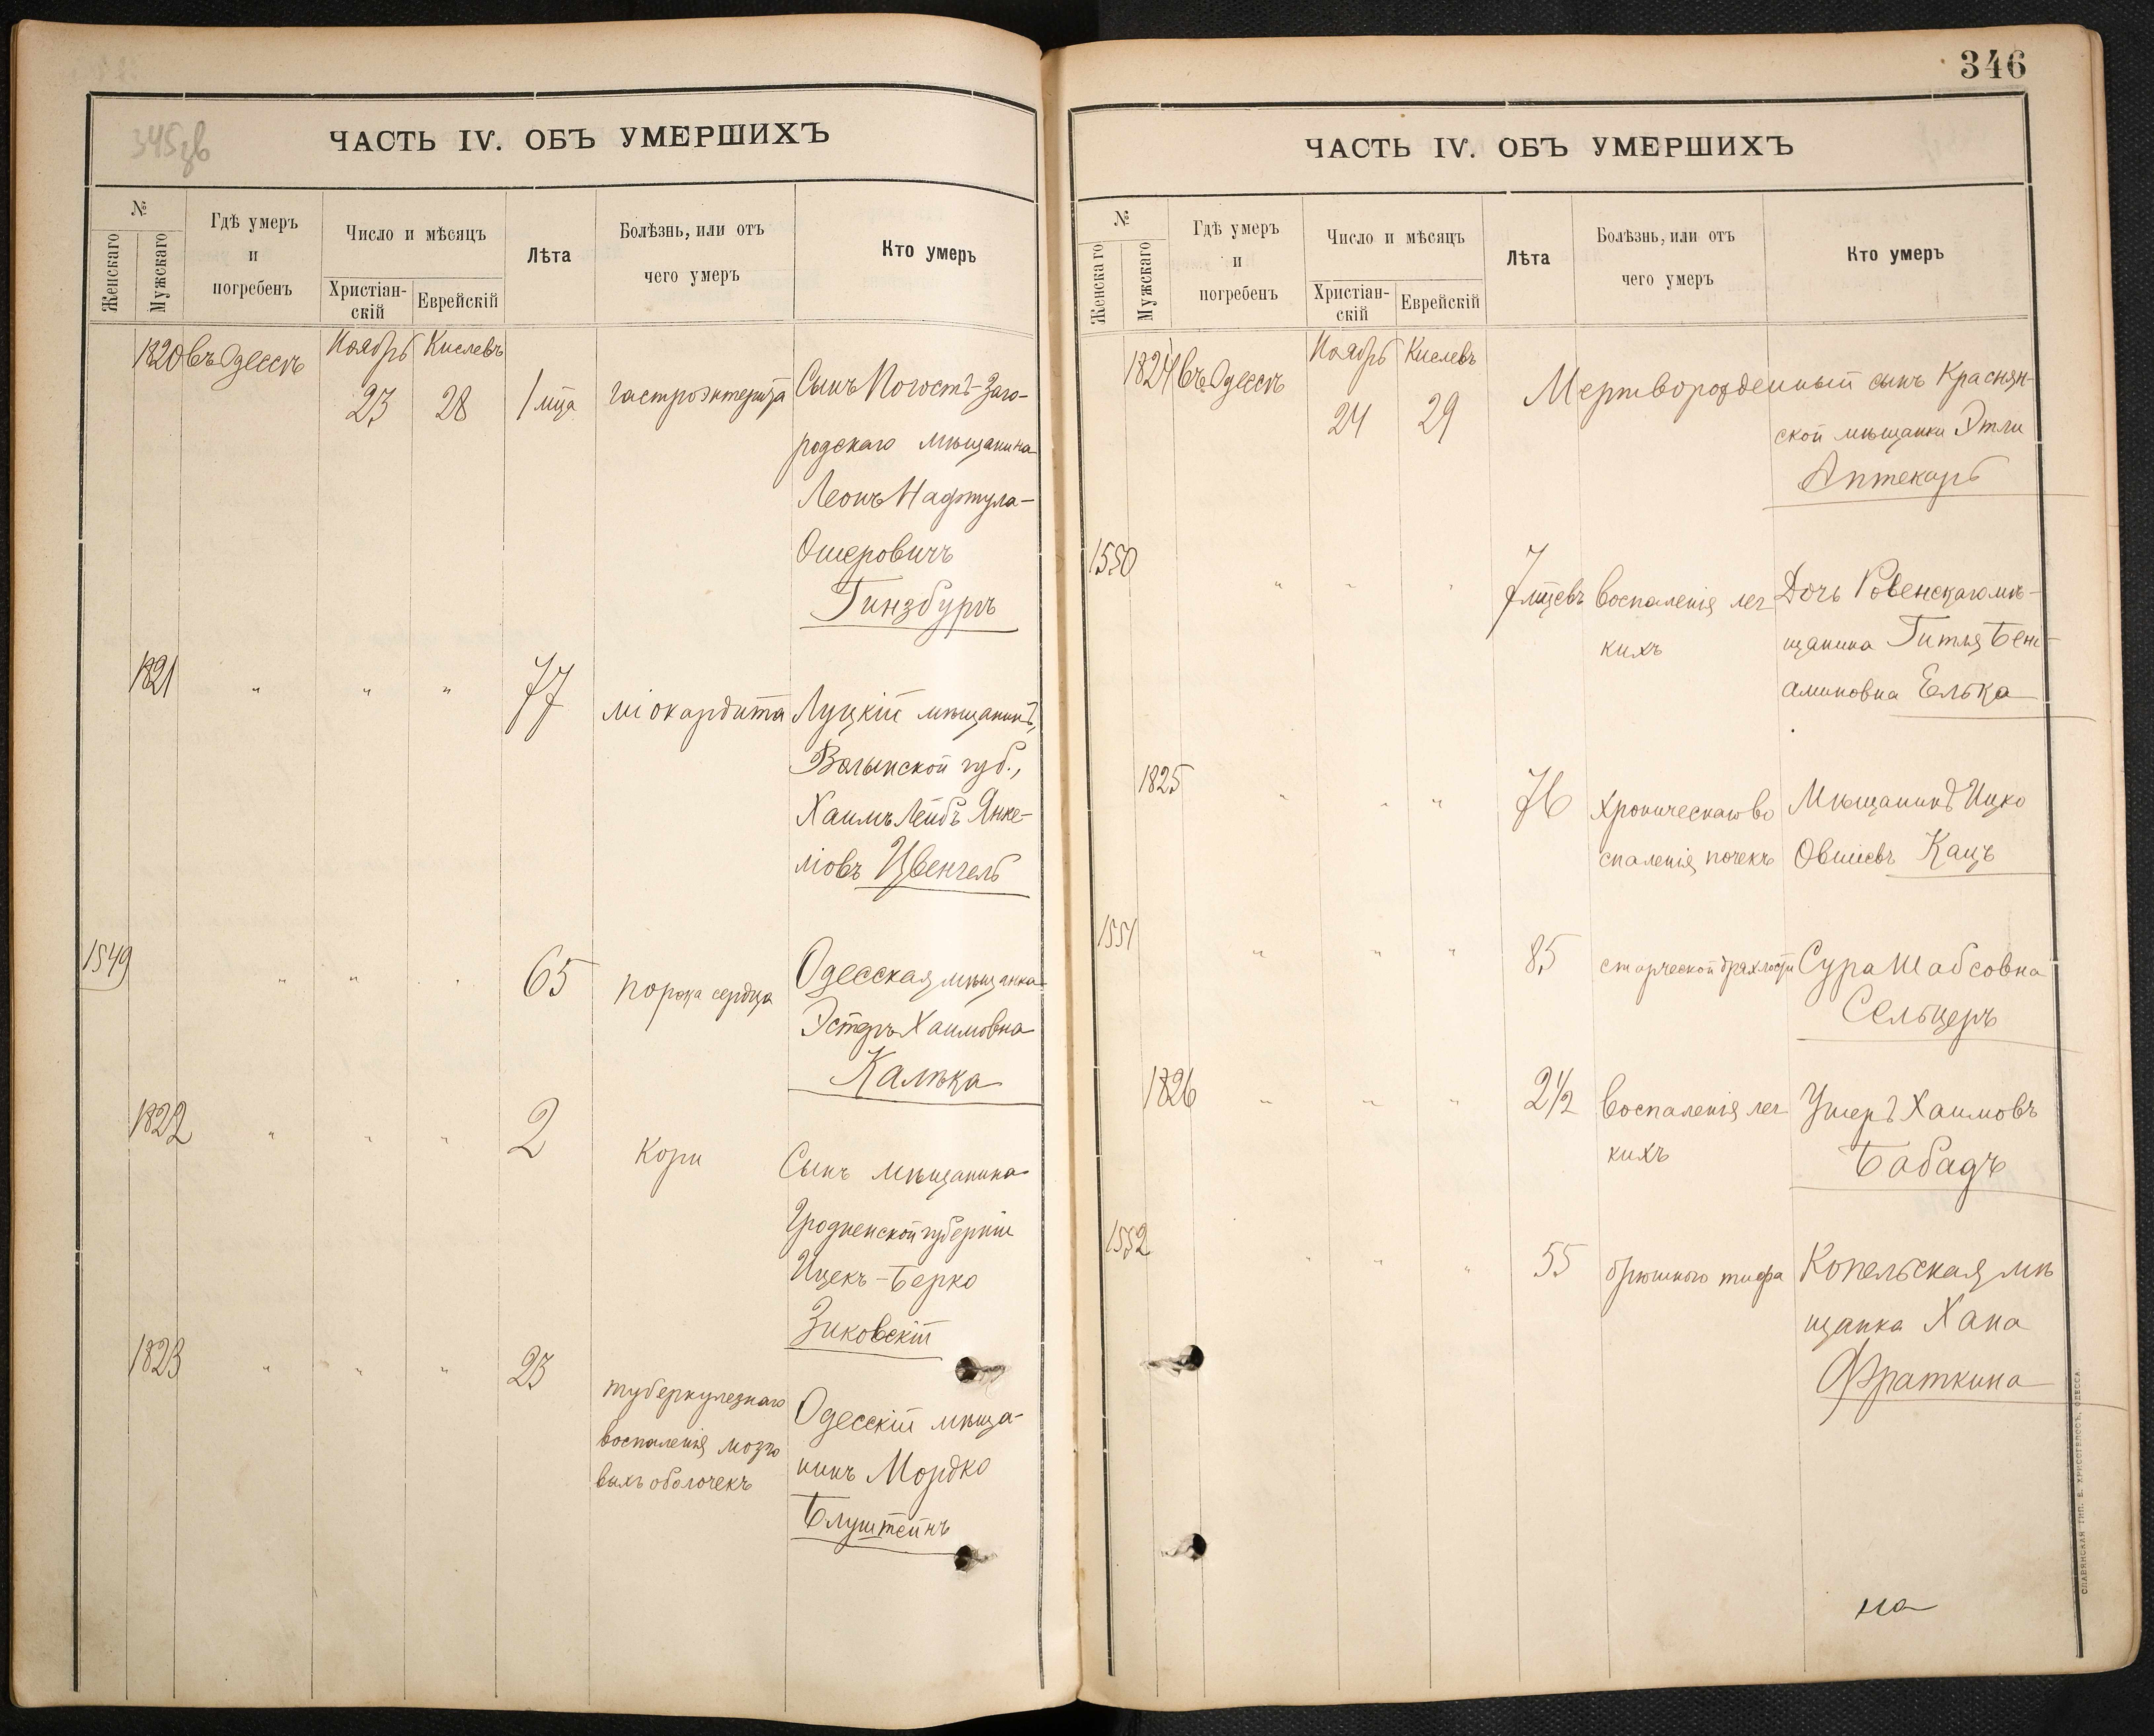 345 зв
ЧАСТЬ IV. ОБЪ УМЕРШИХЪ
№
Женскаго
Мужскаго
Гдѣ умеръ
и
погребенъ
Число и мѣсяцъ
Христіан-
скій
Еврейскій
Лѣта
Болѣзнь, или отъ
чего умеръ
Кто умеръ
1820 въ Одессѣ Ноябрь Кислевъ
23 28 1 мца гастроэнтерита Сынъ Погостъ-Заго-
родскаго мѣщанина
Леонъ Нафтула-
Ошеровичъ
Гинзбургъ
1821 " " " 77 міокардита Луцкій мѣщанинъ,
Волынской губ.,
Хаимъ Лейбъ Янке-
ліовъ Цвенгель
1549 " " " 65 порока сердца Одесская мѣщанка
Эстеръ Хаимовна
Калѣка
1822 " " " 2 кори Сынъ мѣщанина
Гродненской губерніи
Ицекъ-Берко
Зиковскій
1823 " " " 23 туберкулезнаго
воспаленія мозго
выхъ оболочекъ
Одесскій мѣща-
нинъ Мордко
Блуштейнъ
346
ЧАСТЬ IV. ОБЪ УМЕРШИХЪ
№
Женскаго
Мужскаго
Гдѣ умеръ
и
погребенъ
Число и мѣсяцъ
Христіан-
скій
Еврейскій
Лѣта
Болѣзнь, или отъ
чего умеръ
Кто умеръ
1824 въ Одессѣ Ноябрь Кислевъ
24 29 Мертворожденный сынъ Краснян-
ской мѣщанки Этли
Аптекарь
1550 " " " 7 мцевъ воспаленія лег Дочь Ровенскаго мѣ-
кихъ щанина Гитля Бені-
аминовна Елька
1825 " " " 76 хроническаго во Мѣщанинъ Ицко
спаленія почекъ Овшіевъ Кацъ
1551 " " " 85 старческой дряхлости Сура Шабсовна
Сельцеръ
1826 " " " 2½ воспаленія лег Ушеръ Хаимовъ
кихъ Бабадъ
1552 " " " 55 брюшного тифа Копельская мѣ
щанка Хана
Фраткина
на
СЛАВЯНСКАЯ ТИП. Е. ХРИСОГЕЛОСЪ, ОДЕССА.